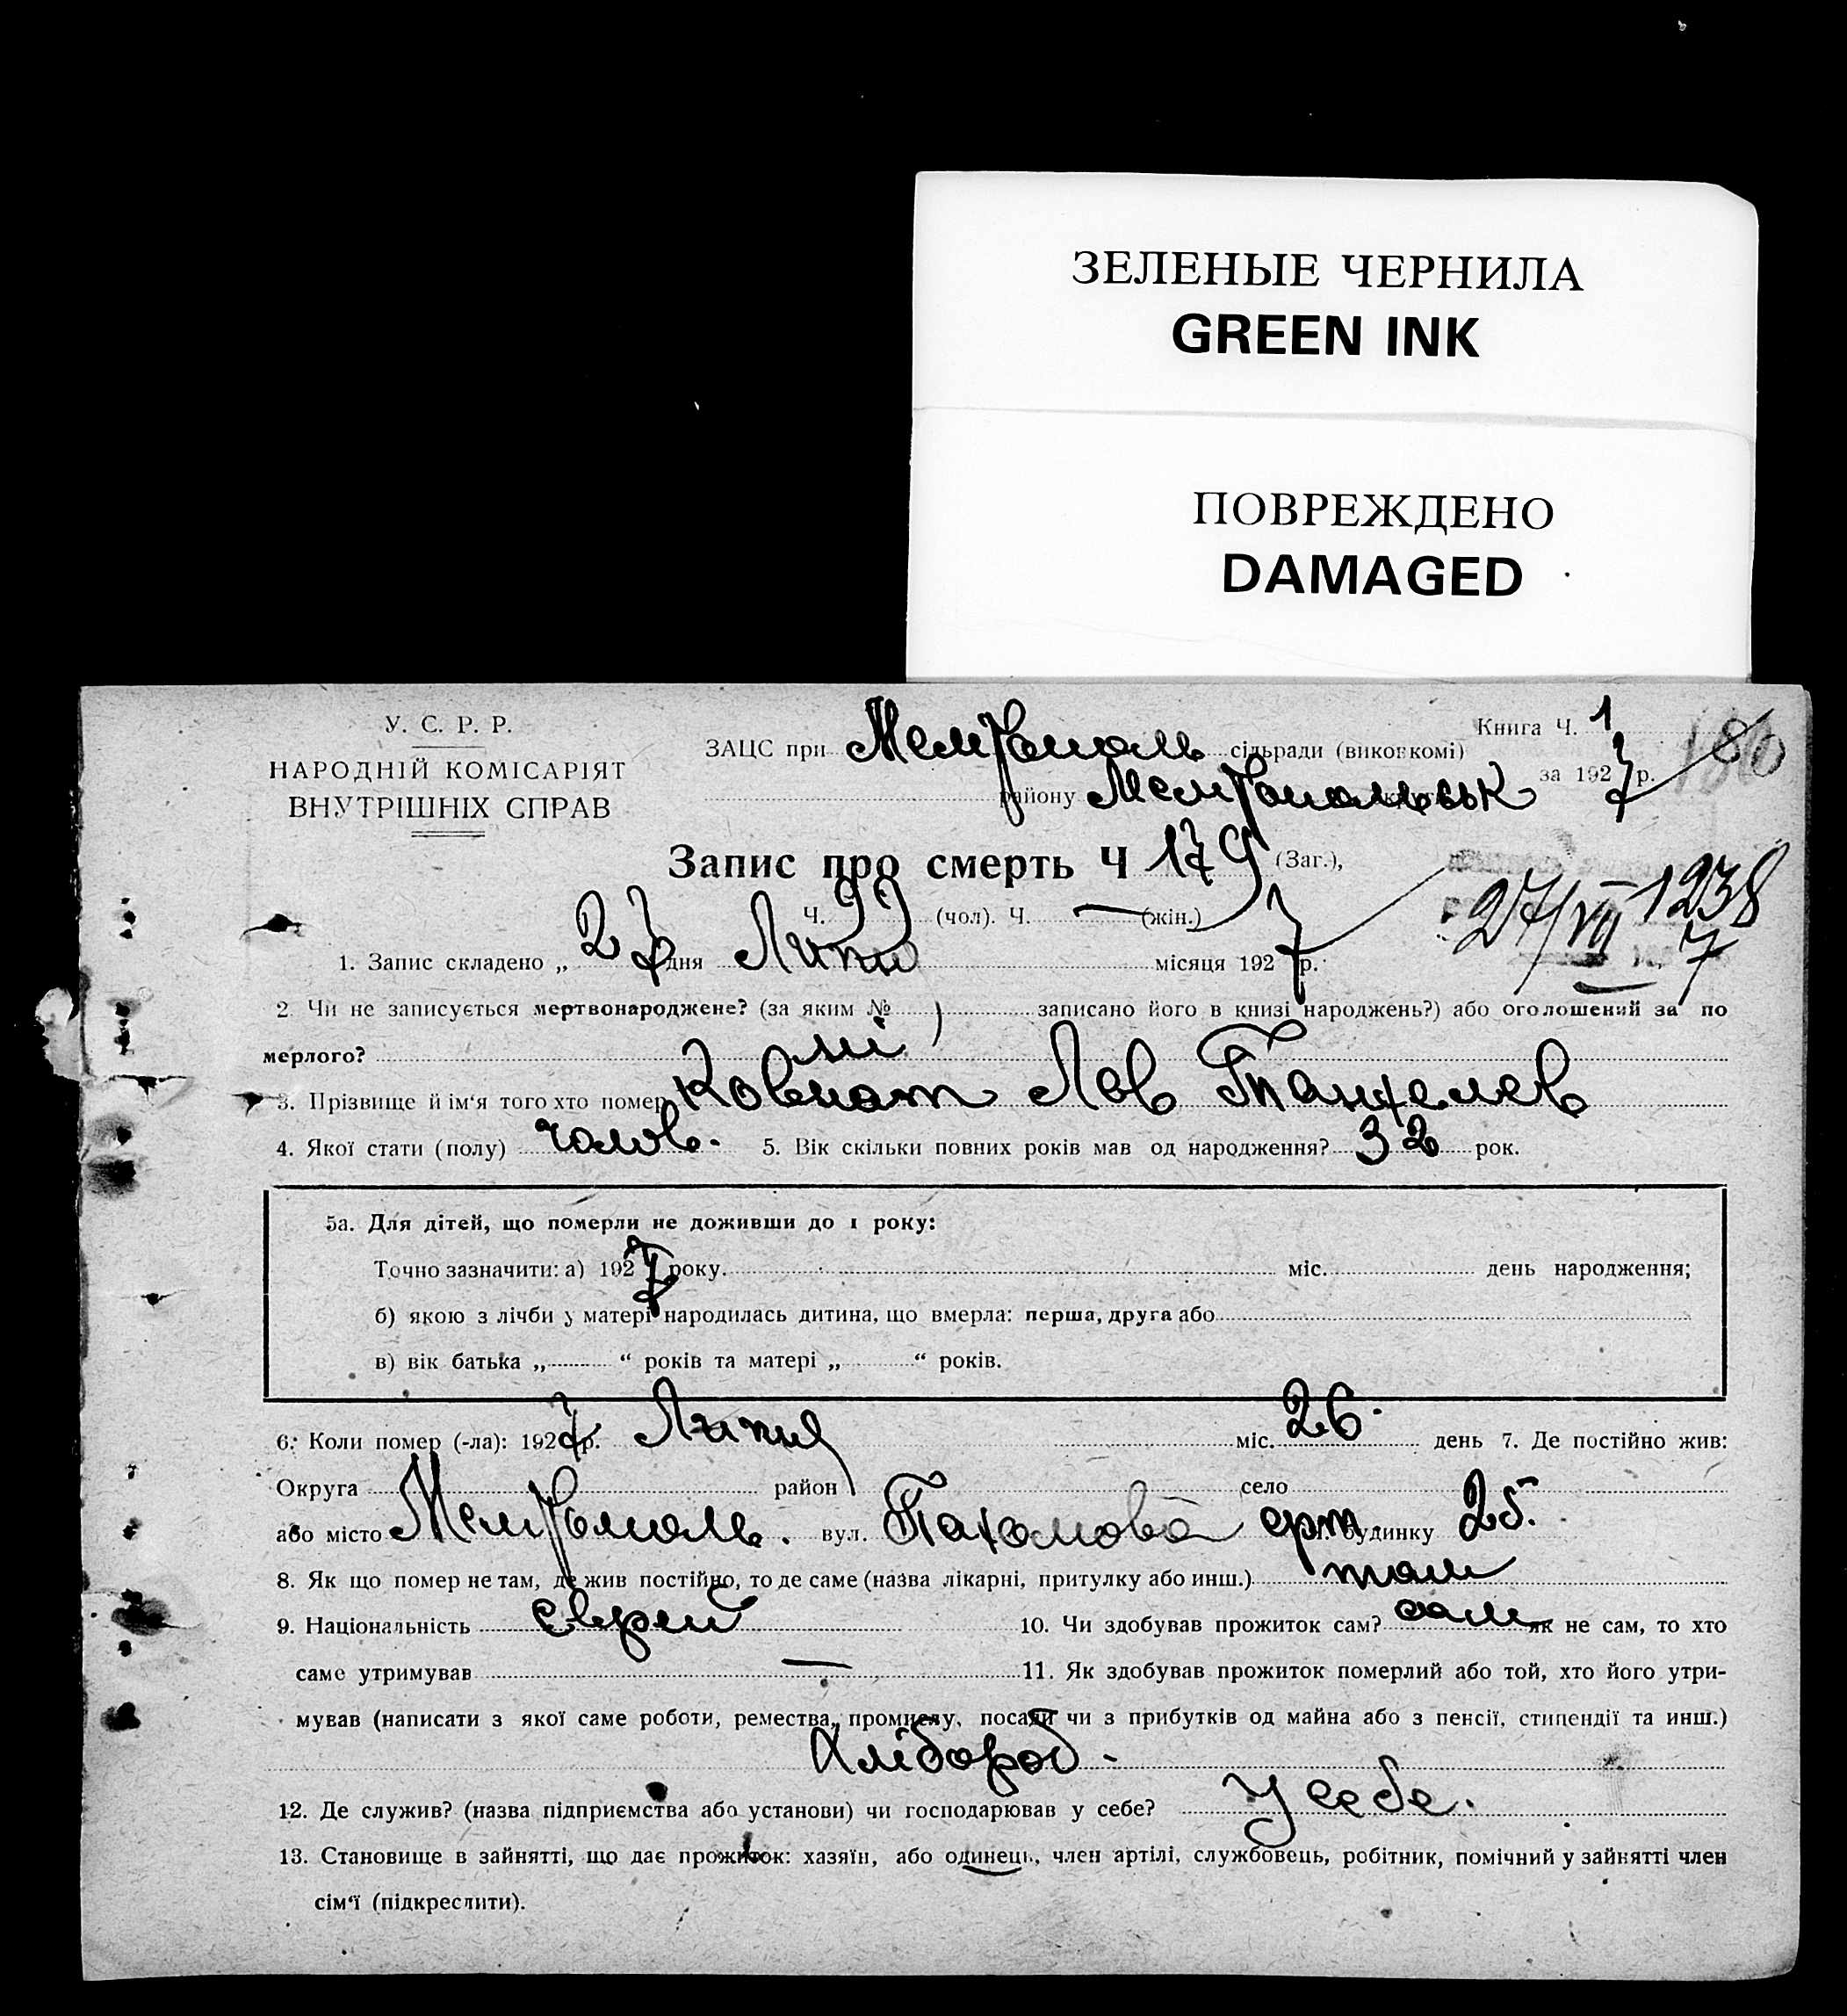 ЗЕЛЕНЫЕ ЧЕРНИЛА
GREEN INK
ПОВРЕЖДЕНО
DAMAGED
У. С. Р. Р.
НАРОДНІЙ КОМІСАРІЯТ
ВНУТРІШНІХ СПРАВ
Книга Ч. 1
ЗАЦС при Мелітополь сільради (виконкомі)
за 1927 р. 180
району Мелітопольськ
Запис про смерть Ч 179 (Заг.),
Ч. 99 (чол). Ч. — (жін.)
27/VII 1238
7
1. Запис складено „ 27 дня Липня місяця 1927 р.
2. Чи не записується мертвонароджене? (за яким № записано його в книзі народжень?) або оголошений за по
мерлого? ні
3. Прізвище й ім‘я того хто помер Ковнат Лев Панхелев
4. Якої стати (полу) чолов. 5. Вік скільки повних років мав од народження? 32 рок.
5а. Для дітей, що померли не доживши до 1 року:
Точно зазначити: а) 1927 року. міс. день народження;
б) якою з лічби у матері народилась дитина, що вмерла: перша, друга або
в) вік батька „ “ років та матері „ “ років.
6. Коли помер (-ла): 1927 р. Липня міс. 26 день 7. Де постійно жив:
Округа район село
або місто Мелітополь. вул. Пахомова будинку 25.
8. Як що помер не там, де жив постійно, то де саме (назва лікарні, притулку або инш.) там
9. Національність єврей 10. Чи здобував прожиток сам? сам як не сам, то хто
саме утримував — 11. Як здобував прожиток померлий або той, хто його утри-
мував (написати з якої саме роботи, ремества, промислу, посади чи з прибутків од майна або з пенсії, стипендії та инш.)
Хлібороб -
12. Де служив? (назва підприємства або установи) чи господарював у себе? У себе.
13. Становище в зайнятті, що дає прожиток: хазяїн, або одинець, член артілі, службовець, робітник, помічний у зайнятті член
сім‘ї (підкреслити).